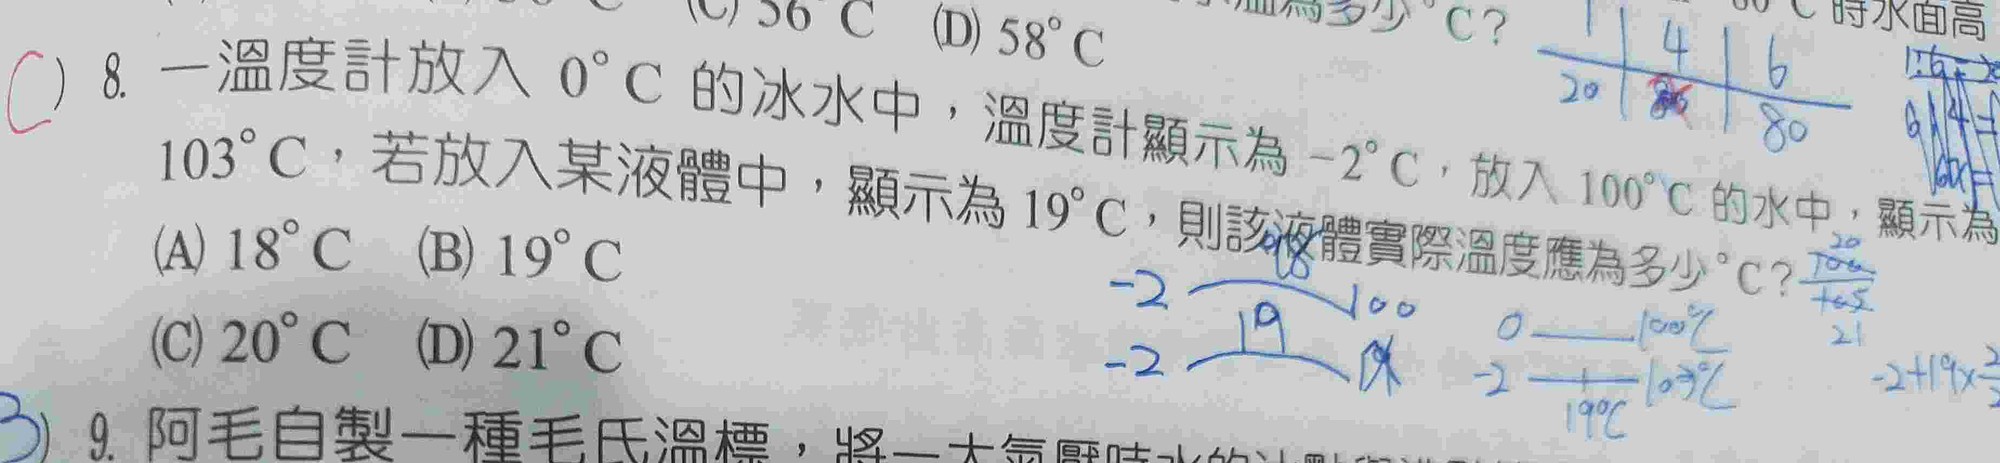 (C) 56°C (D) 58°C
為多少°C?
°C 時水面高
1 4 6
20 80
C) 8. 一溫度計放入 0°C 的冰水中，溫度計顯示為 -2°C，放入 100°C 的水中，顯示為
103°C，若放入某液體中，顯示為 19°C，則該液體實際溫度應為多少°C?
(A) 18°C (B) 19°C
(C) 20°C (D) 21°C
-2 18 100
-2 19
0 100℃
-2 103℃
19℃
20
21
-2+19×
9. 阿毛自製一種毛氏溫標，將一大氣壓時水的